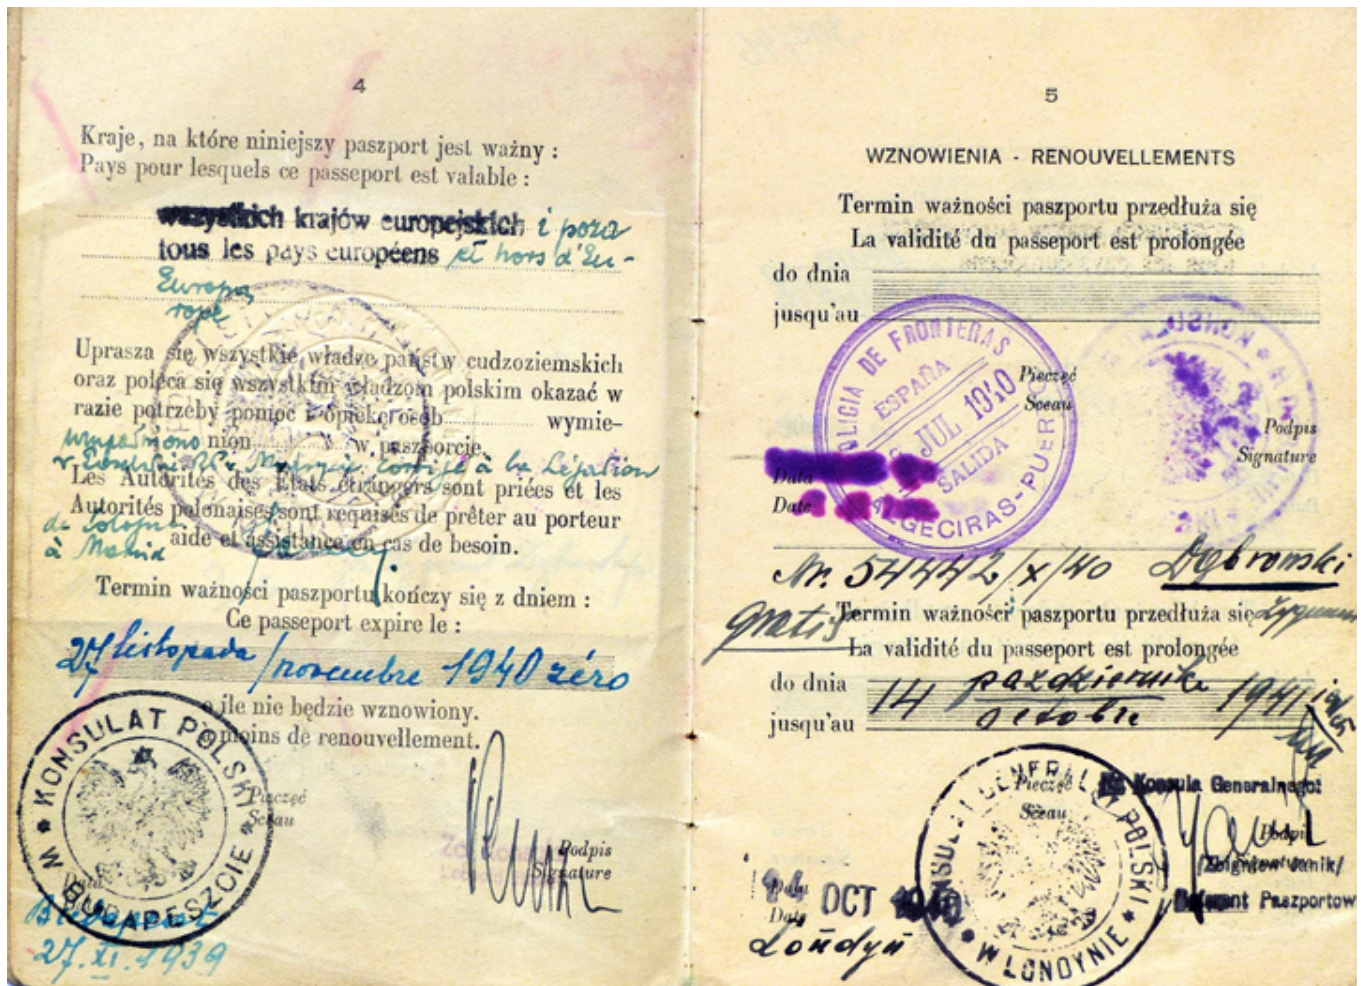 4
Kraje, na które niniejszy paszport jest ważny :
Pays pour lesquels ce passeport est valable :
wszystkich krajów europejskich i poza
tous les pays européens et hors d'Eu-
Europą
rope
Uprasza się wszystkie władze państw cudzoziemskich
oraz poleca się wszystkim władzom polskim okazać w
razie potrzeby pomoc i opiekę osób wymie-
nion w paszporcie.
uzupełniono
Madrycie. Corrigé à la Légation
Les Autorités des États étrangers sont priées et les
Autorités polonaises sont requises de prêter au porteur
de Pologne
à Madrid
aide et assistance en cas de besoin.
Termin ważności paszportu kończy się z dniem :
Ce passeport expire le :
27 listopada / novembre 1940 zéro
o ile nie będzie wznowiony.
à moins de renouvellement.
KONSULAT POLSKI
W BUDAPESZCIE
Pieczęć
Sceau
Podpis
Signature
Data
Budapeszt
27.XI.1939
5
WZNOWIENIA - RENOUVELLEMENTS
Termin ważności paszportu przedłuża się
La validité du passeport est prolongée
do dnia
jusqu'au
POLICIA DE FRONTERAS
ESPAÑA
JUL 1940
SALIDA
ALGECIRAS-PUER
Pieczęć
Sceau
Podpis
Signature
Data
Date
Nr. 54442/X/40 Dąbrowski
gratis
Termin ważności paszportu przedłuża się
La validité du passeport est prolongée
do dnia
jusqu'au
14 października 1941
octobre
KONSULAT GENERALNY POLSKI
W LONDYNIE
Pieczęć
Sceau
Konsula Generalnego:
Podpis
Signature
/Zbigniew Janik/
Referent Paszportow
Data
Date
14 OCT 1940
Londyn